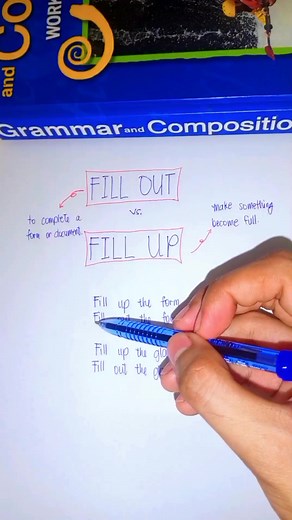 and Co
WORK
Grammar and Compositio
FILL OUT
vs.
to complete a
form or document.
make something
become full.
FILL UP
Fill up the form
Fill out the
Fill up the
Fill out the